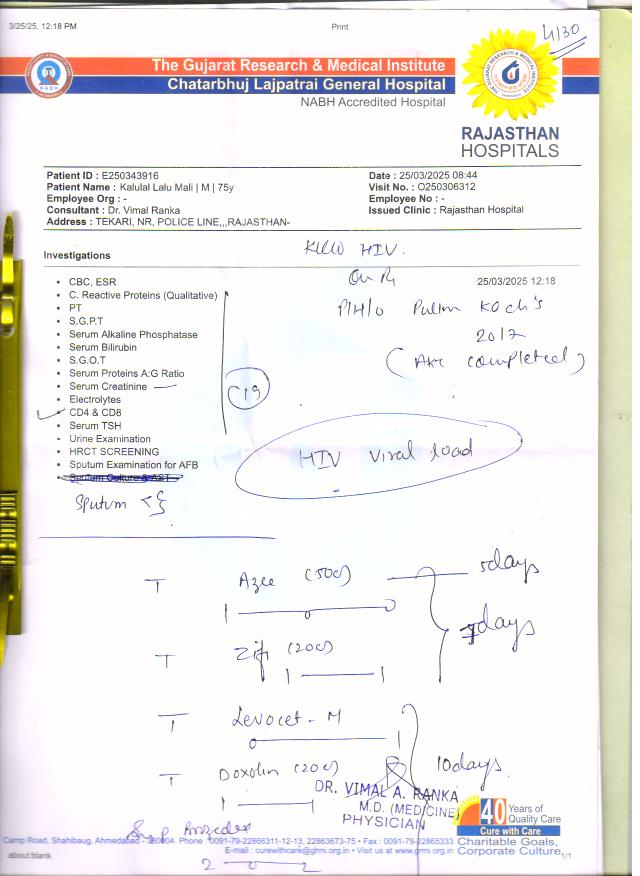 3/25/25, 12:18 PM Print
4130
The Gujarat Research & Medical Institute
Chatarbhuj Lajpatrai General Hospital
NABH Accredited Hospital
NABH
RAJASTHAN
HOSPITALS
Patient ID : E250343916 Date : 25/03/2025 08:44
Patient Name : Kalulal Lalu Mali | M | 75y Visit No. : O250306312
Employee Org : - Employee No : -
Consultant : Dr. Vimal Ranka Issued Clinic : Rajasthan Hospital
Address : TEKARI, NR, POLICE LINE,,,RAJASTHAN-
K/c/o HIV.
On R
Investigations
25/03/2025 12:18
P/H/o Pulm Koch's
2017
(AKT completed)
• CBC, ESR
• C. Reactive Proteins (Qualitative)
• PT
• S.G.P.T
• Serum Alkaline Phosphatase
• Serum Bilirubin
• S.G.O.T
• Serum Proteins A:G Ratio
• Serum Creatinine
• Electrolytes
• CD4 & CD8
• Serum TSH
• Urine Examination
• HRCT SCREENING
• Sputum Examination for AFB
• Sputum Culture & AST
C19
HIV Viral load
Sputum
T Azee (500) 5days
7days
T Zifi (200)
T Levocet - M
T Doxolin (200) 10days
DR. VIMAL A. RANKA
M.D. (MEDICINE)
PHYSICIAN
40 Years of
Quality Care
Cure with Care
Charitable Goals,
Corporate Culture
Camp Road, Shahibaug, Ahmedabad - 380004. Phone : 0091-79-22866311-12-13, 22863673-75 • Fax : 0091-79-22865333
E-mail : curewithcare@grmi.org.in • Visit us at www.grmi.org.in
about:blank 1/1
2 0 2